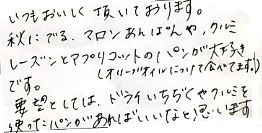 いつもおいしく頂いております。
秋にでる、マロンあんぱんや、クルミ
レーズンとアプリコットのパンが大好き
です。(オリーブオイルにつけて食べてます!)
要望としては、ドライいちぢくやクルミを
使ったパンがあればいいなと思います